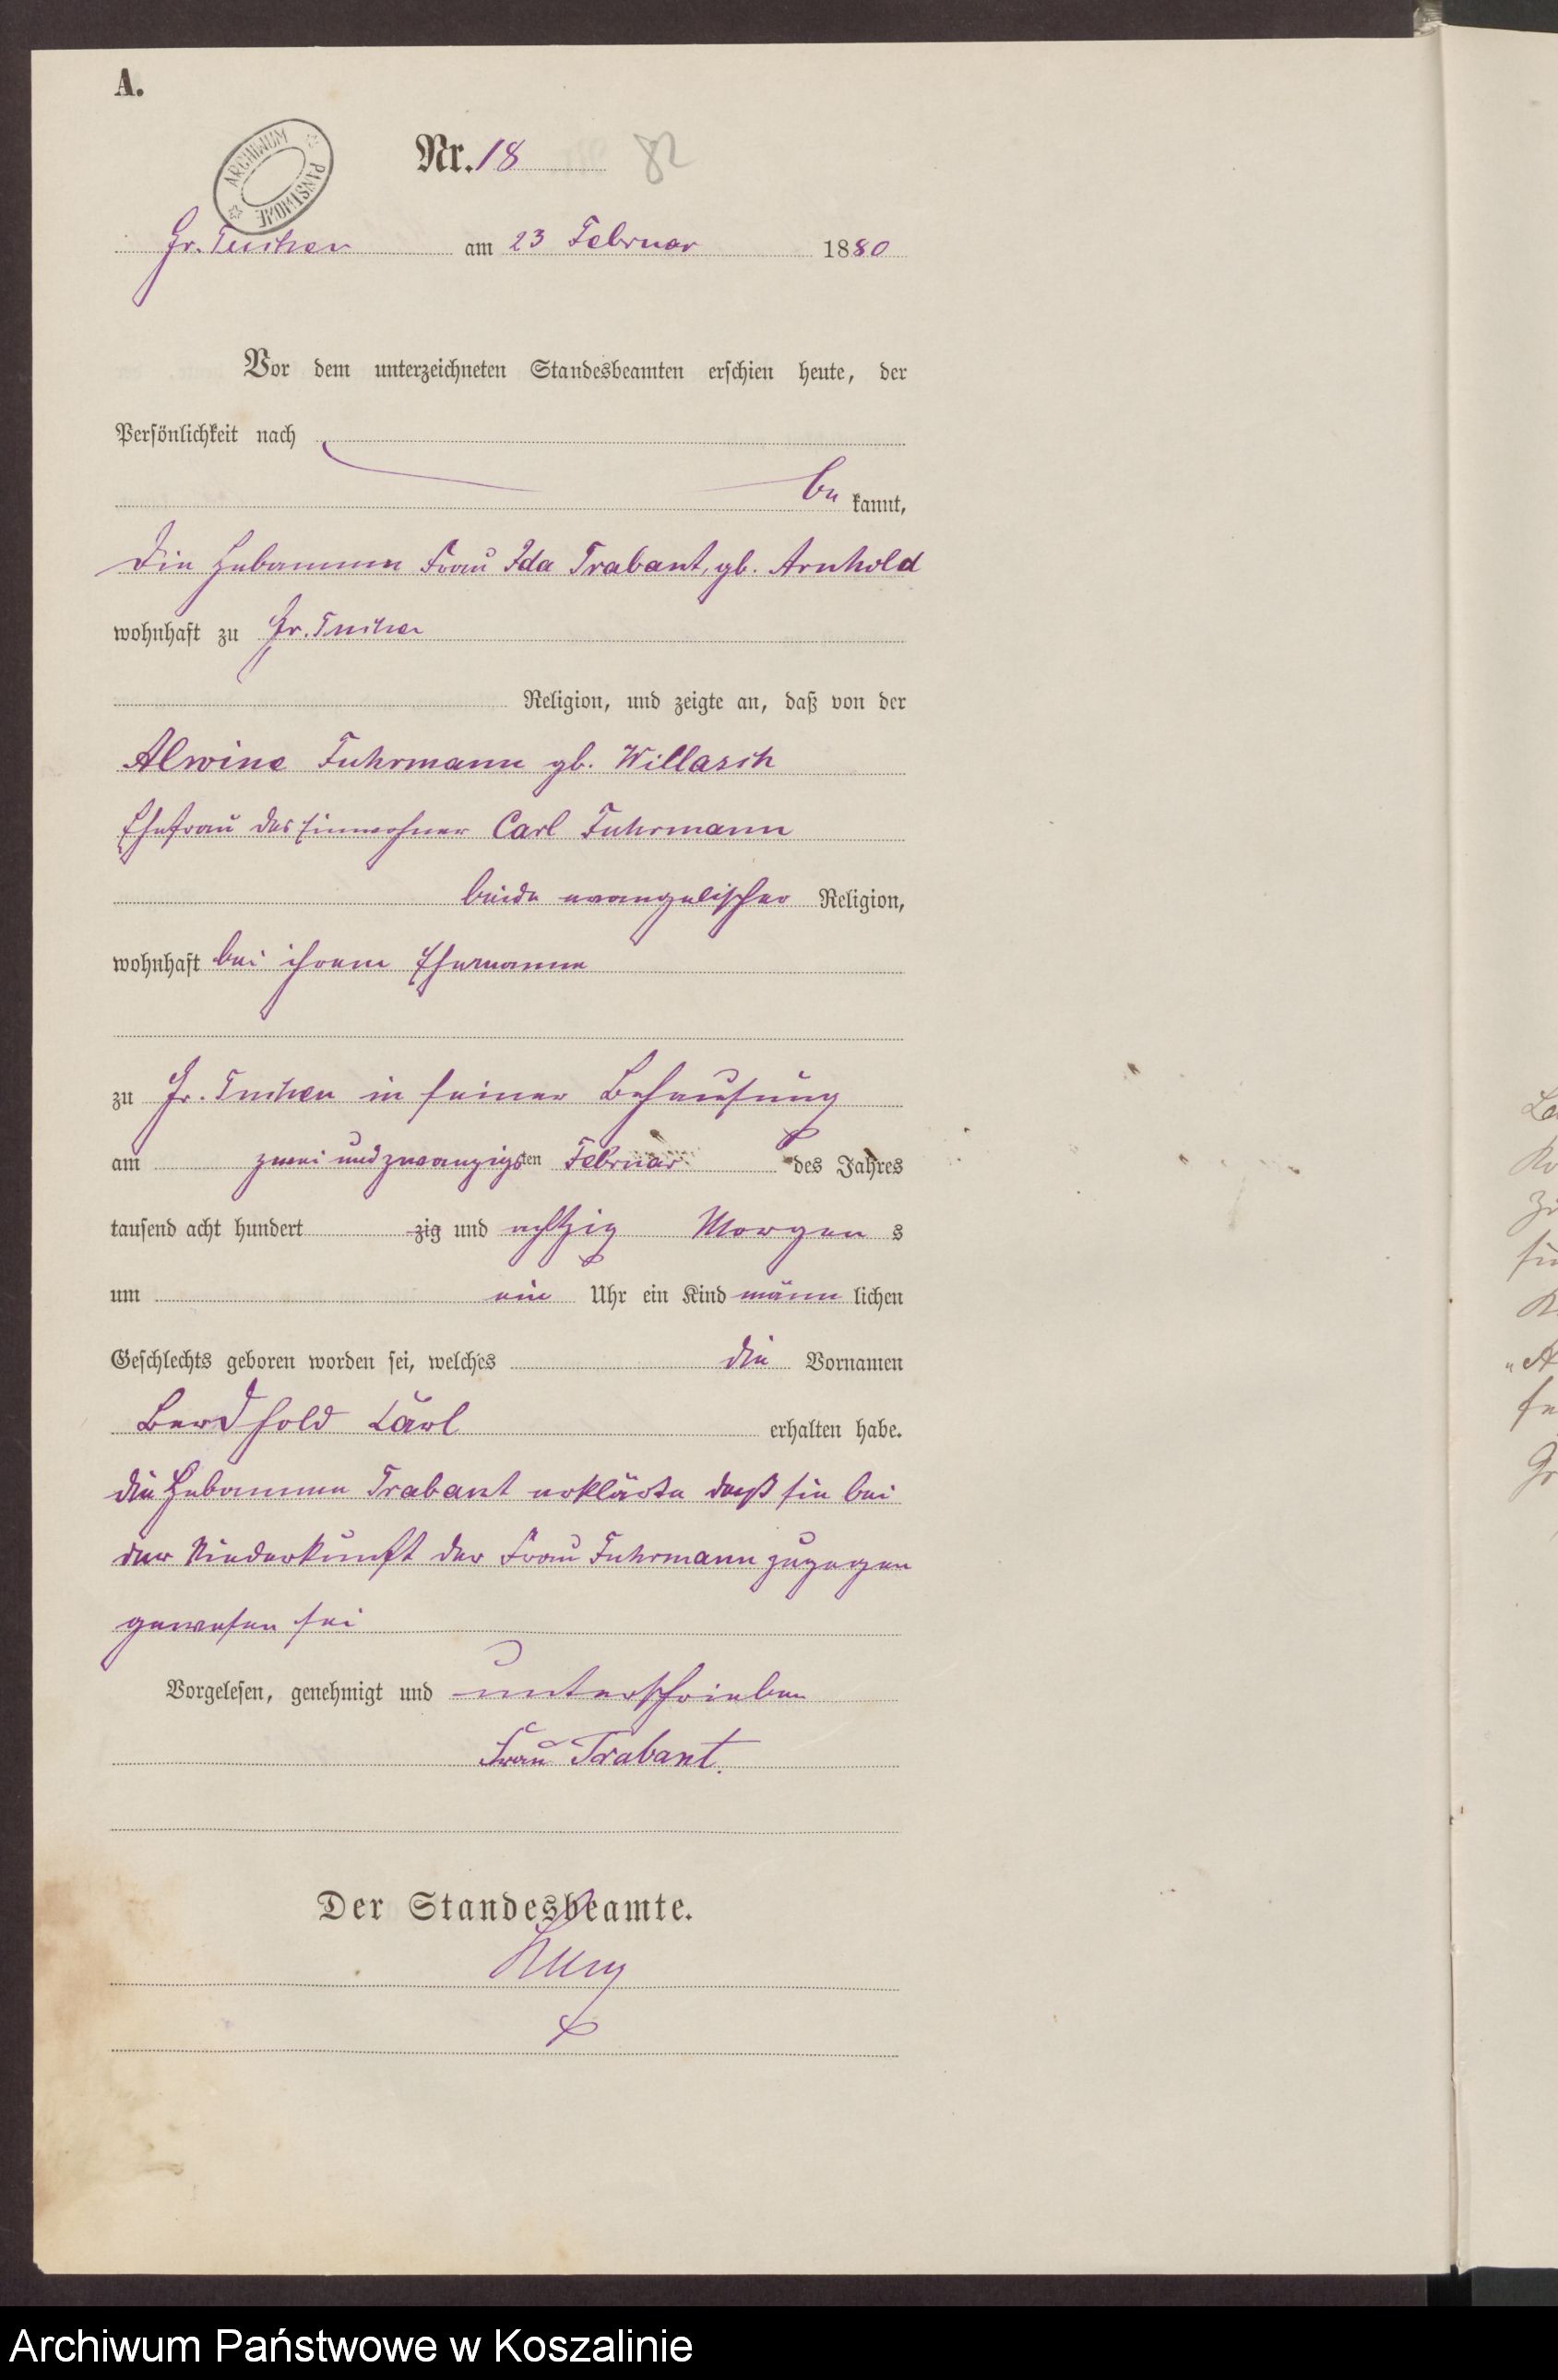 A.
ARCHIWUM PAŃSTWOWE
Nr. 18 82
Gr. Tuchen am 23 Februar 1880
Vor dem unterzeichneten Standesbeamten erschien heute, der
Persönlichkeit nach
be kannt,
die Hebamme Frau Ida Trabant, gb. Arnhold
wohnhaft zu Gr. Tuchen
Religion, und zeigte an, daß von der
Alwine Fuhrmann gb. Willasch
Ehefrau des Einwohner Carl Fuhrmann
beide evangelischer Religion,
wohnhaft bei ihrem Ehemanne
zu Gr. Tuchen in seiner Behausung
am zwei und zwanzigsten Februar des Jahres
tausend acht hundert zig und achtzig Morgen s
um ein Uhr ein Kind männ lichen
Geschlechts geboren worden sei, welches die Vornamen
Berdhold Carl erhalten habe.
die Hebamme Trabant erklärte daß sie bei
der Niederkunft der Frau Fuhrmann zugegen
gewesen sei
Vorgelesen, genehmigt und unterschrieben
Frau Trabant.
Der Standesbeamte.
Archiwum Państwowe w Koszalinie